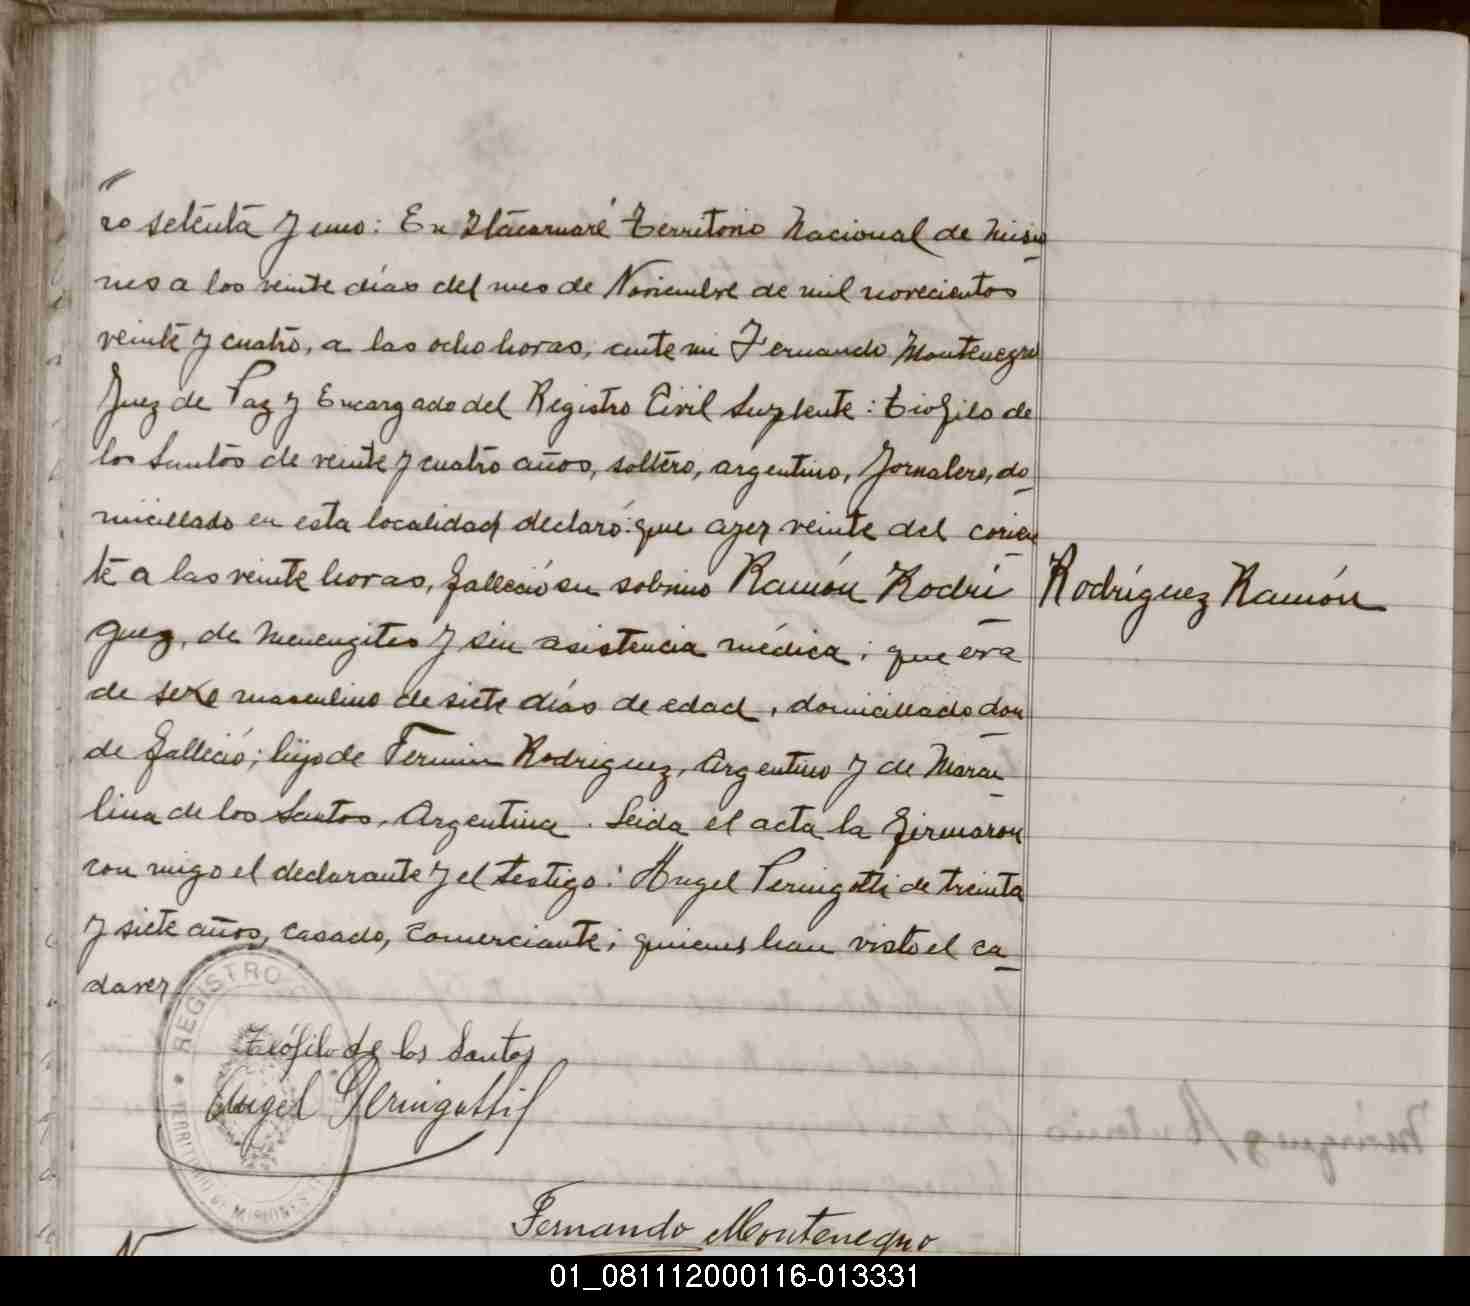 ro setenta y uno: En Itacaruaré Territorio Nacional de Misio
nes a los veinte días del mes de Noviembre de mil novecientos
veinte y cuatro, a las ocho horas, ante mi Fernando Montenegro
Juez de Paz y Encargado del Registro Civil Suplente: Tiofilo de
los Santos de veinte y cuatro años, soltero, argentino, Jornalero, do_
micillado en esta localidad declaró: que ayer veinte del corien
te a las veinte horas, falleció su sobrino Ramón Rodrí
guez, de menengites y sin asistencia médica; que era
de sexo masculino de siete días de edad, domicillado don
de falleció; hijo de Fermin Rodriguez, Argentino y de Marce
lina de los Santos, Argentina. Leida el acta la firmaron
con migo el declarante y el testigo: Angel Peringotti de treinta
y siete años, casado, comerciante; quienes han visto el ca_
daver
Rodríguez Ramón
REGISTRO
Teófilo de los Santos
Angel Peringotti
TERRITORIO DE MISIONES
Fernando Montenegro
01_081112000116-013331